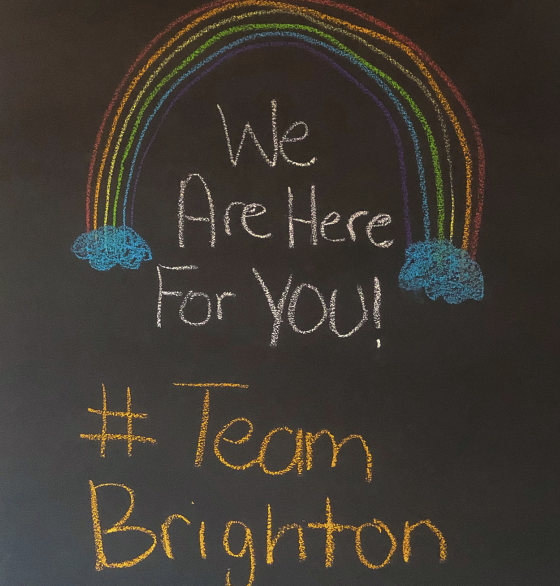 We
Are Here
For YOU!
# Team
Brighton